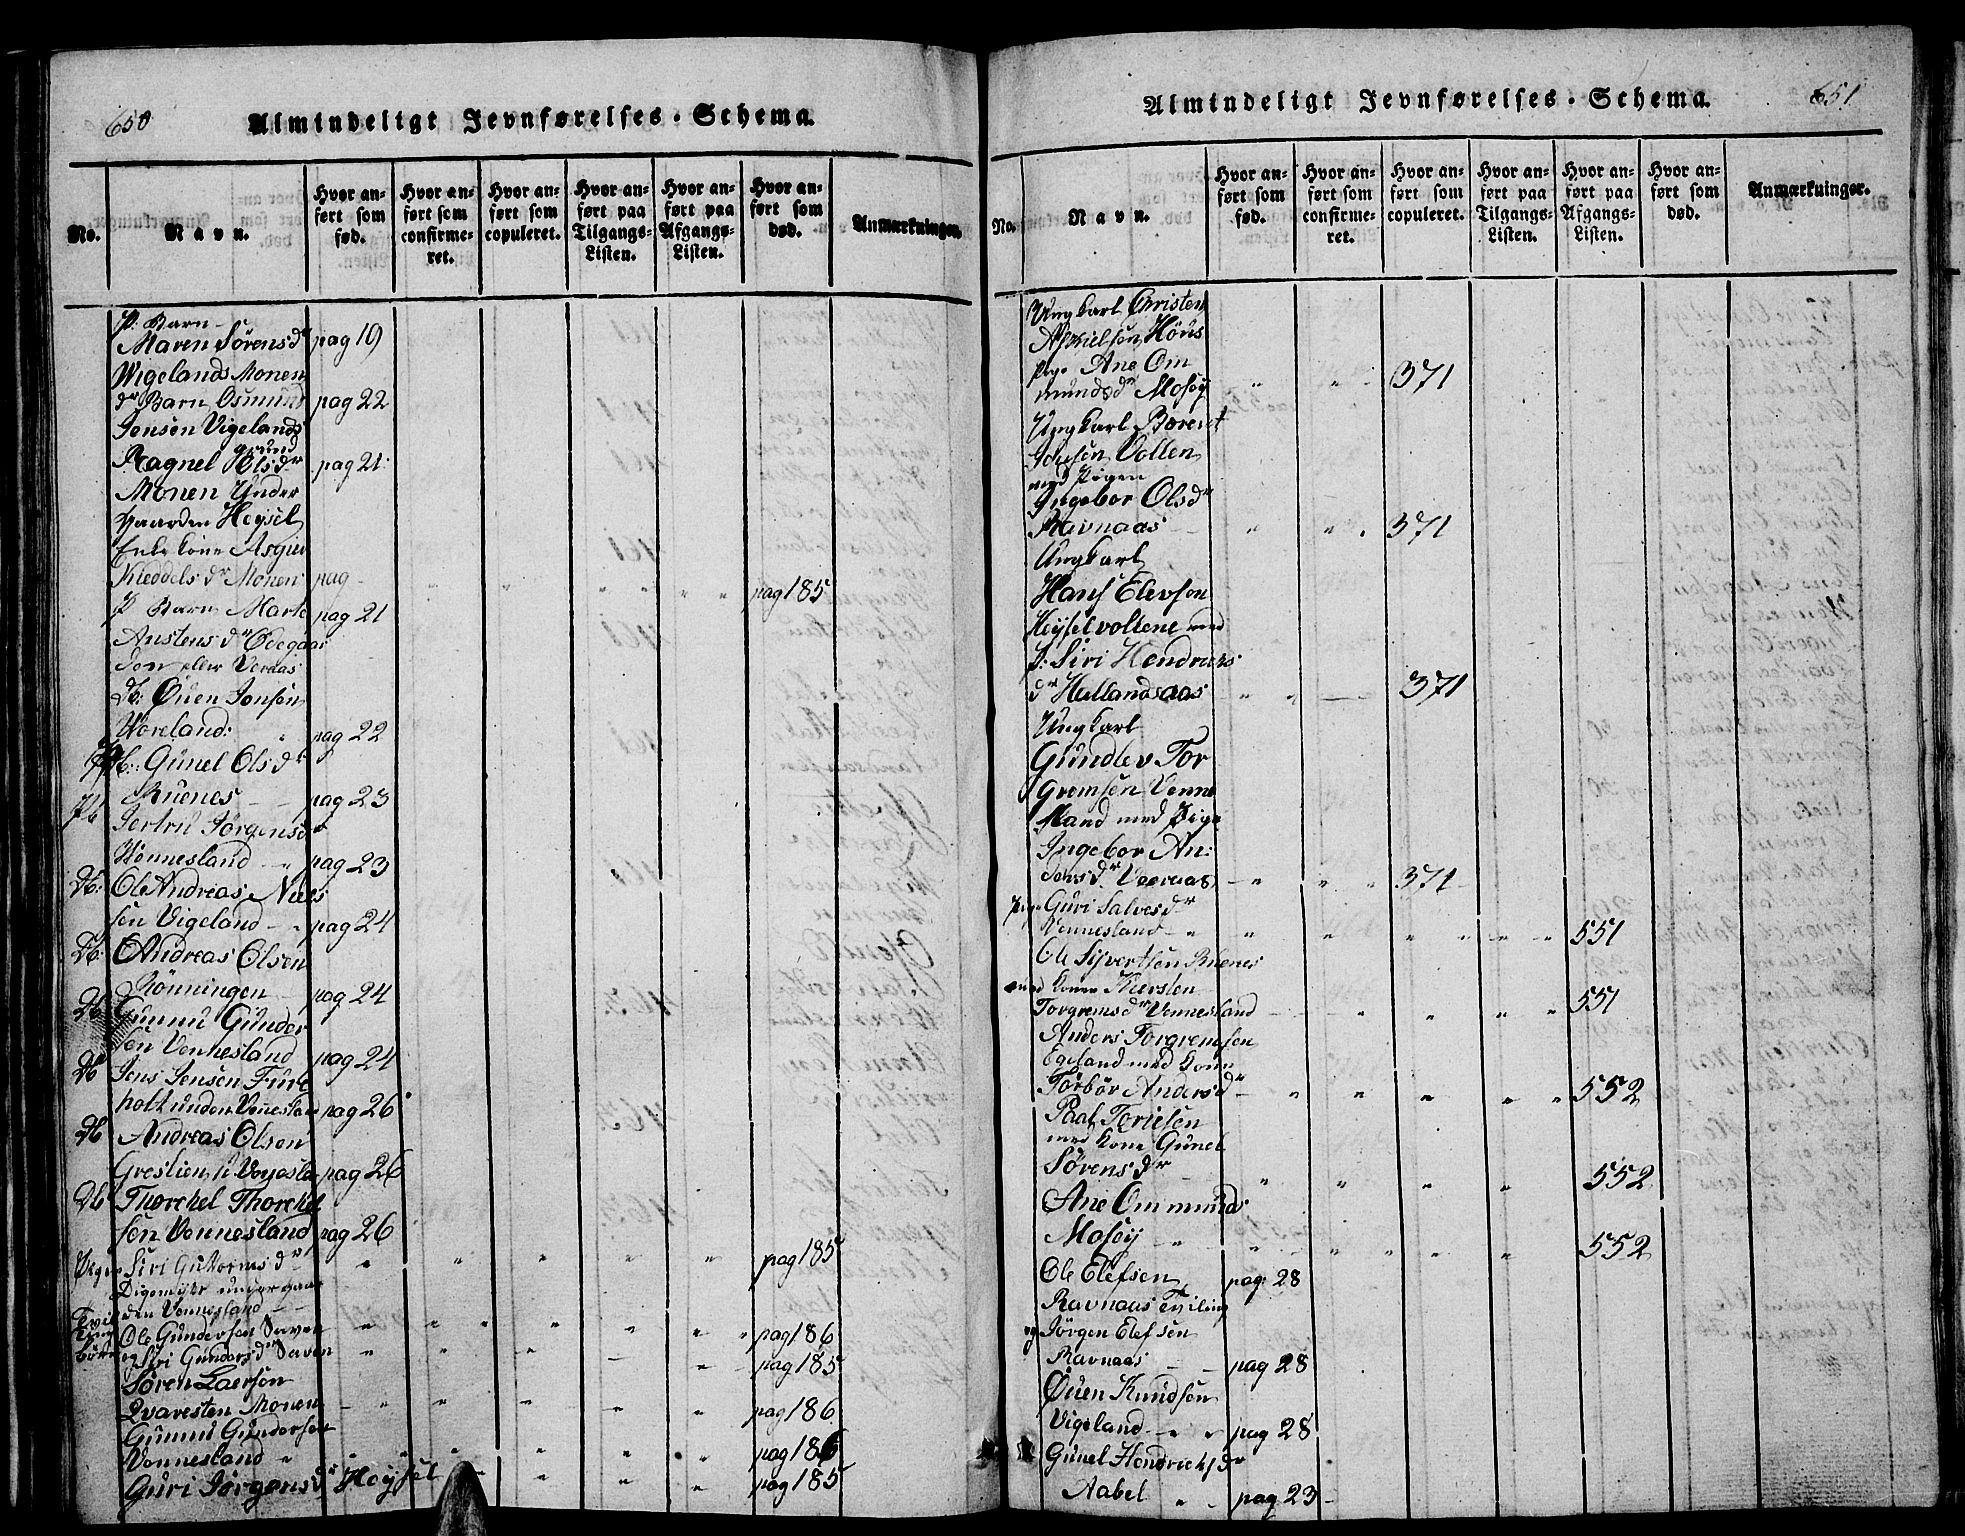 650
Almindeligt Jevnførelses-Schema.
No.
Navn.
Hvor anført som fød.
Hvor anført som confirmeret.
Hvor anført som copuleret.
Hvor anført paa Tilgangs-Listen.
Hvor anført paa Afgangs-Listen.
Hvor anført som død.
Anmærkninger.
P: Barn
Maren Sörensdr pag 19
Wigelands Monen
dr Barn Osmund pag 22
Jensen Vigelands
grund
Ragnel Olsdr pag 21
Monen Under
gaarden Heysel
Enke kone Asgier
Kieddelsdr Monen pag - " " " " " pag 185
P Barn Marte pag 21
Anstensdr Ödegaar
den eller Veraas
Db: Öuen Jonsen
Woreland: " pag 22
Pb: Gunel Olsdr
Ruenes - - pag 23
Pb Jertru Jörgensdr
Wennesland - " pag 23
Db: Ole Andreas Niels
sen Vigeland - " pag 24
Db: Andreas Olsen
Rönningen pag 24
Db Gunnu Gunder
sen Vennesland pag 24
Db Jens Jensen Fure
holt unden Venesla pag 26
Db Andreas Olsen
Greslien u Venesla pag 26
Db Thorckel Thorckel
sen Vennesland pag 26
Pige Siri Gutormsdr " " " " " pag 185
Digemyhr under gaar
den Vennesland - -
Tvil Ole Gundersen Saven " " " " " " pag 186
ling
börn og Siri Gundersdr Saven " " " - " pag 185
Sören Laersen
Qvaresten Monen - " " " " " pag 186
Gunnu Gundersen
Vennesland " " " " " " " pag 186
Guri Jörgensdr Höysel - " " " pag 185
651
Almindeligt Jevnførelses-Schema.
No.
Navn.
Hvor anført som fød.
Hvor anført som confirmeret.
Hvor anført som copuleret.
Hvor anført paa Tilgangs-Listen.
Hvor anført paa Afgangs-Listen.
Hvor anført som død.
Anmærkninger.
Ungkarl Christen
Askielsen Höus
Pige Ane Om
mundsdr Mosöy " " " 371
Ungkarl Borent
Jensen Vollen
med Pigen
Ingebor Olsdr
Ravnaas - " " " 371
Ungkarl
Hans Elevsen
Heyselvollene med
P: Siri Hendrecks
dr Hullandsaas " " - 371
Ungkarl
Gundlev Tor
Gremsen Venne
sland med Pige
Ingebor An:
dersdr Veeraas - " " " 371
Pige Guri Salvesdr
Vennesland - " " " " " " " 551
Ole Sijvertsen Ruenes
med konen Kiersten
Torgremsdr Vennesland - - " " " " 551
Anders Torgremsen
Egeland med kone
Torbör Andersdr - " " " " " 552
Paal Torielsen
med kone Gunel
Sörensdr " " " " 552
Ane Ommunds
Mosöy " " " " " " " 552
Ole Elefsen pag: 28
Ravnaas Tviling
og Jörgen Elefsen
Ravnaas - - pag 28
Öuen Knudsen
Vigeland - " " pag 28
Gunel Hendrichsdr
Aabel " " pag 23 -